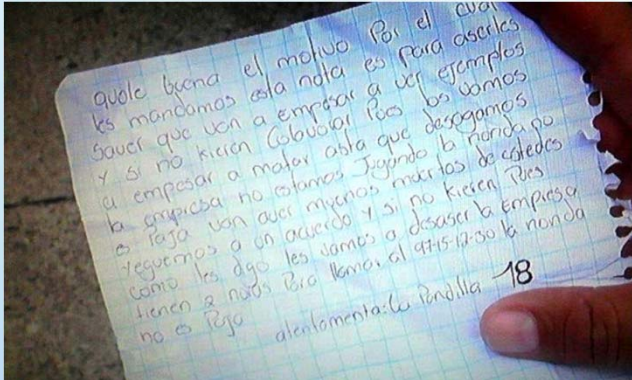 quole buena el motivo Por el cual
les mandamos esta nota es para aserles
Saver que van a empesar a ver ejemplos
Y si no kieren Colavorar Pues los vamos
a empesar a matar asta que desogamos
la empresa no estamos Jugando la honda no
es Paja van aver muchos muertos de ustedes
Yeguemos a un acuerdo Y si no kieren Pues
como les digo les vamos a desaser la Empresa
tienen 2 horas Para llamar al 97-15-12-30 la honda
no es Paja
atentamente: la Pandilla 18